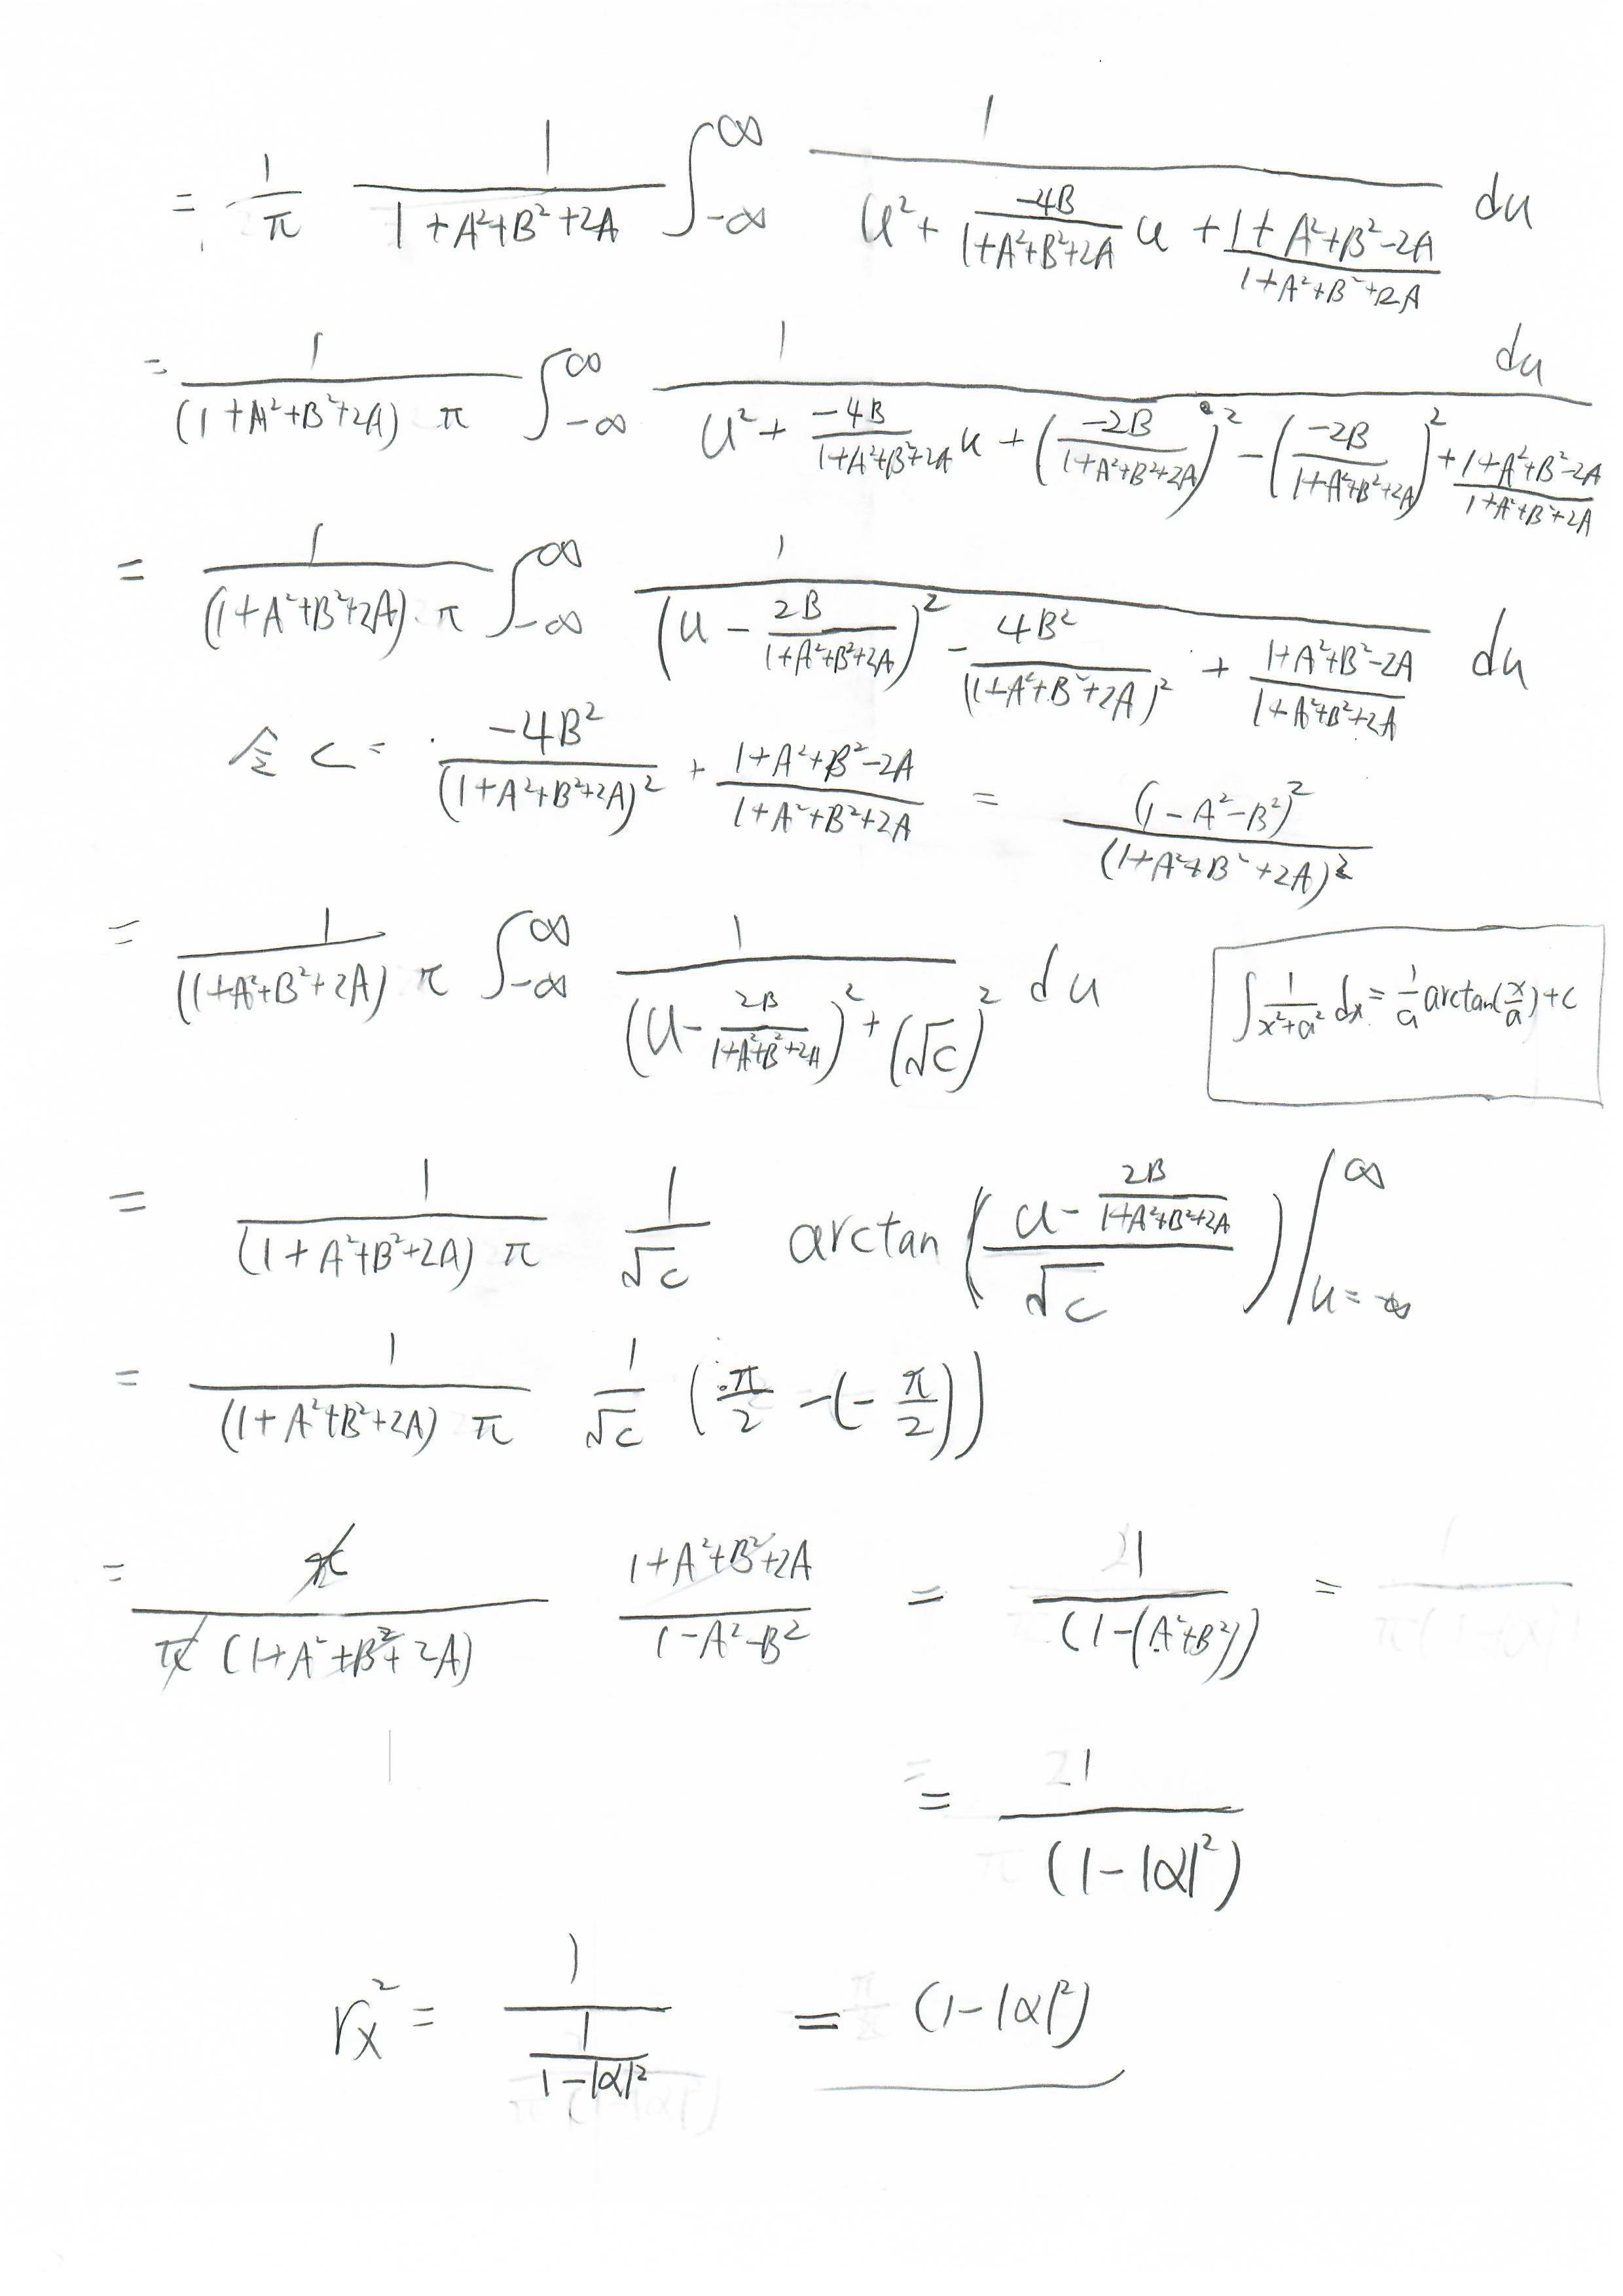 = \frac{1}{\pi} \frac{1}{1+A^2+B^2+2A} \int_{-\infty}^{\infty} \frac{1}{u^2 + \frac{-4B}{1+A^2+B^2+2A} u + \frac{1+A^2+B^2-2A}{1+A^2+B^2+2A}} du
= \frac{1}{(1+A^2+B^2+2A) \pi} \int_{-\infty}^{\infty} \frac{1}{u^2 + \frac{-4B}{1+A^2+B^2+2A} u + \left(\frac{-2B}{1+A^2+B^2+2A}\right)^2 - \left(\frac{-2B}{1+A^2+B^2+2A}\right)^2 + \frac{1+A^2+B^2-2A}{1+A^2+B^2+2A}} du
= \frac{1}{(1+A^2+B^2+2A) \cdot \pi} \int_{-\infty}^{\infty} \frac{1}{\left(u - \frac{2B}{1+A^2+B^2+2A}\right)^2 - \frac{4B^2}{(1+A^2+B^2+2A)^2} + \frac{1+A^2+B^2-2A}{1+A^2+B^2+2A}} du
令 C = \frac{-4B^2}{(1+A^2+B^2+2A)^2} + \frac{1+A^2+B^2-2A}{1+A^2+B^2+2A} = \frac{(1-A^2-B^2)^2}{(1+A^2+B^2+2A)^2}
= \frac{1}{(1+A^2+B^2+2A) \pi} \int_{-\infty}^{\infty} \frac{1}{\left(u - \frac{2B}{1+A^2+B^2+2A}\right)^2 + (\sqrt{C})^2} du
\int \frac{1}{x^2+a^2} dx = \frac{1}{a} arctan(\frac{x}{a}) + C
= \frac{1}{(1+A^2+B^2+2A) \pi} \frac{1}{\sqrt{C}} arctan \left( \frac{u - \frac{2B}{1+A^2+B^2+2A}}{\sqrt{C}} \right) \Big|_{u=-\infty}^{\infty}
= \frac{1}{(1+A^2+B^2+2A) \pi} \frac{1}{\sqrt{C}} \left( \frac{\pi}{2} - (-\frac{\pi}{2}) \right)
= \frac{\pi}{\pi (1+A^2+B^2+2A)} \frac{1+A^2+B^2+2A}{1-A^2-B^2} = \frac{1}{(1-(A^2+B^2))} =
= \frac{1}{(1-|\alpha|^2)}
r_x^2 = \frac{1}{\frac{1}{1-|\alpha|^2}} = (1-|\alpha|^2)